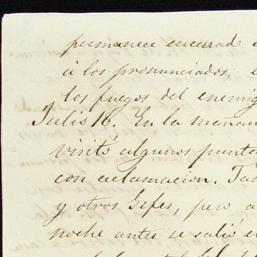 permanece encerrad
á los pronunciados,
los fuegos del enemig
Julio 16. En la mañan
visité algunos puntos
con aclamacion. Ta
y otros Gefes, pero a
noche antes se salió e